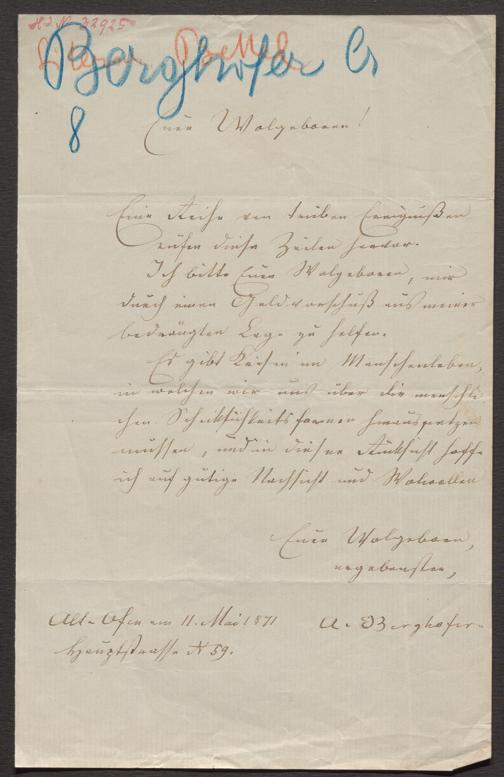 H.I.N. 32925
Berghofer A
8
Euer Wolgeboren!
Eine Reihe von trüben Ereignißen
rufen diese Zeilen hervor.
Ich bitte Euer Wolgeboren, mir
durch einen Geldvorschuß aus meiner
bedrängten Lage zu helfen.
Es gibt Krisen im Menschenleben,
in welchen wir uns über die menschli
chen Schicklichkeitsformen hinaussetzen
müssen, und in dieser Rücksicht hoffe
ich auf gütige Nachsicht und Wolwollen
Euer Wolgeboren,
ergebenster,
Alt-Ofen am 11. Mai 1871
A. Berghofer
Hauptstrasse N 59.